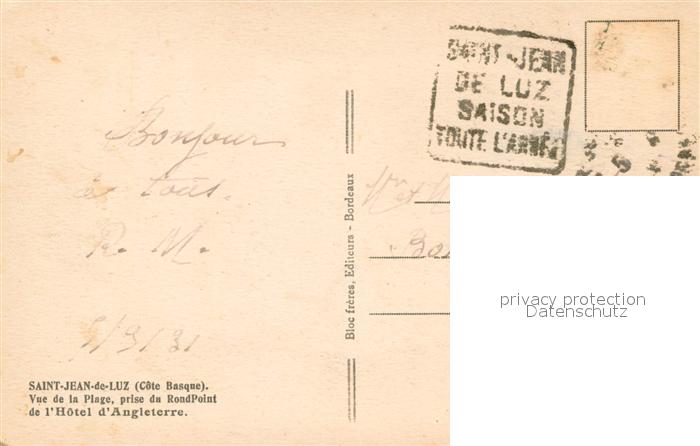 SAINT-JEAN
DE LUZ
SAISON
TOUTE L'ANNÉE
Bonjour
à tous.
R. M.
Bloc frères, Editeurs - Bordeaux
privacy protection
Datenschutz
SAINT-JEAN-de-LUZ (Côte Basque).
Vue de la Plage, prise du RondPoint
de l'Hôtel d'Angleterre.